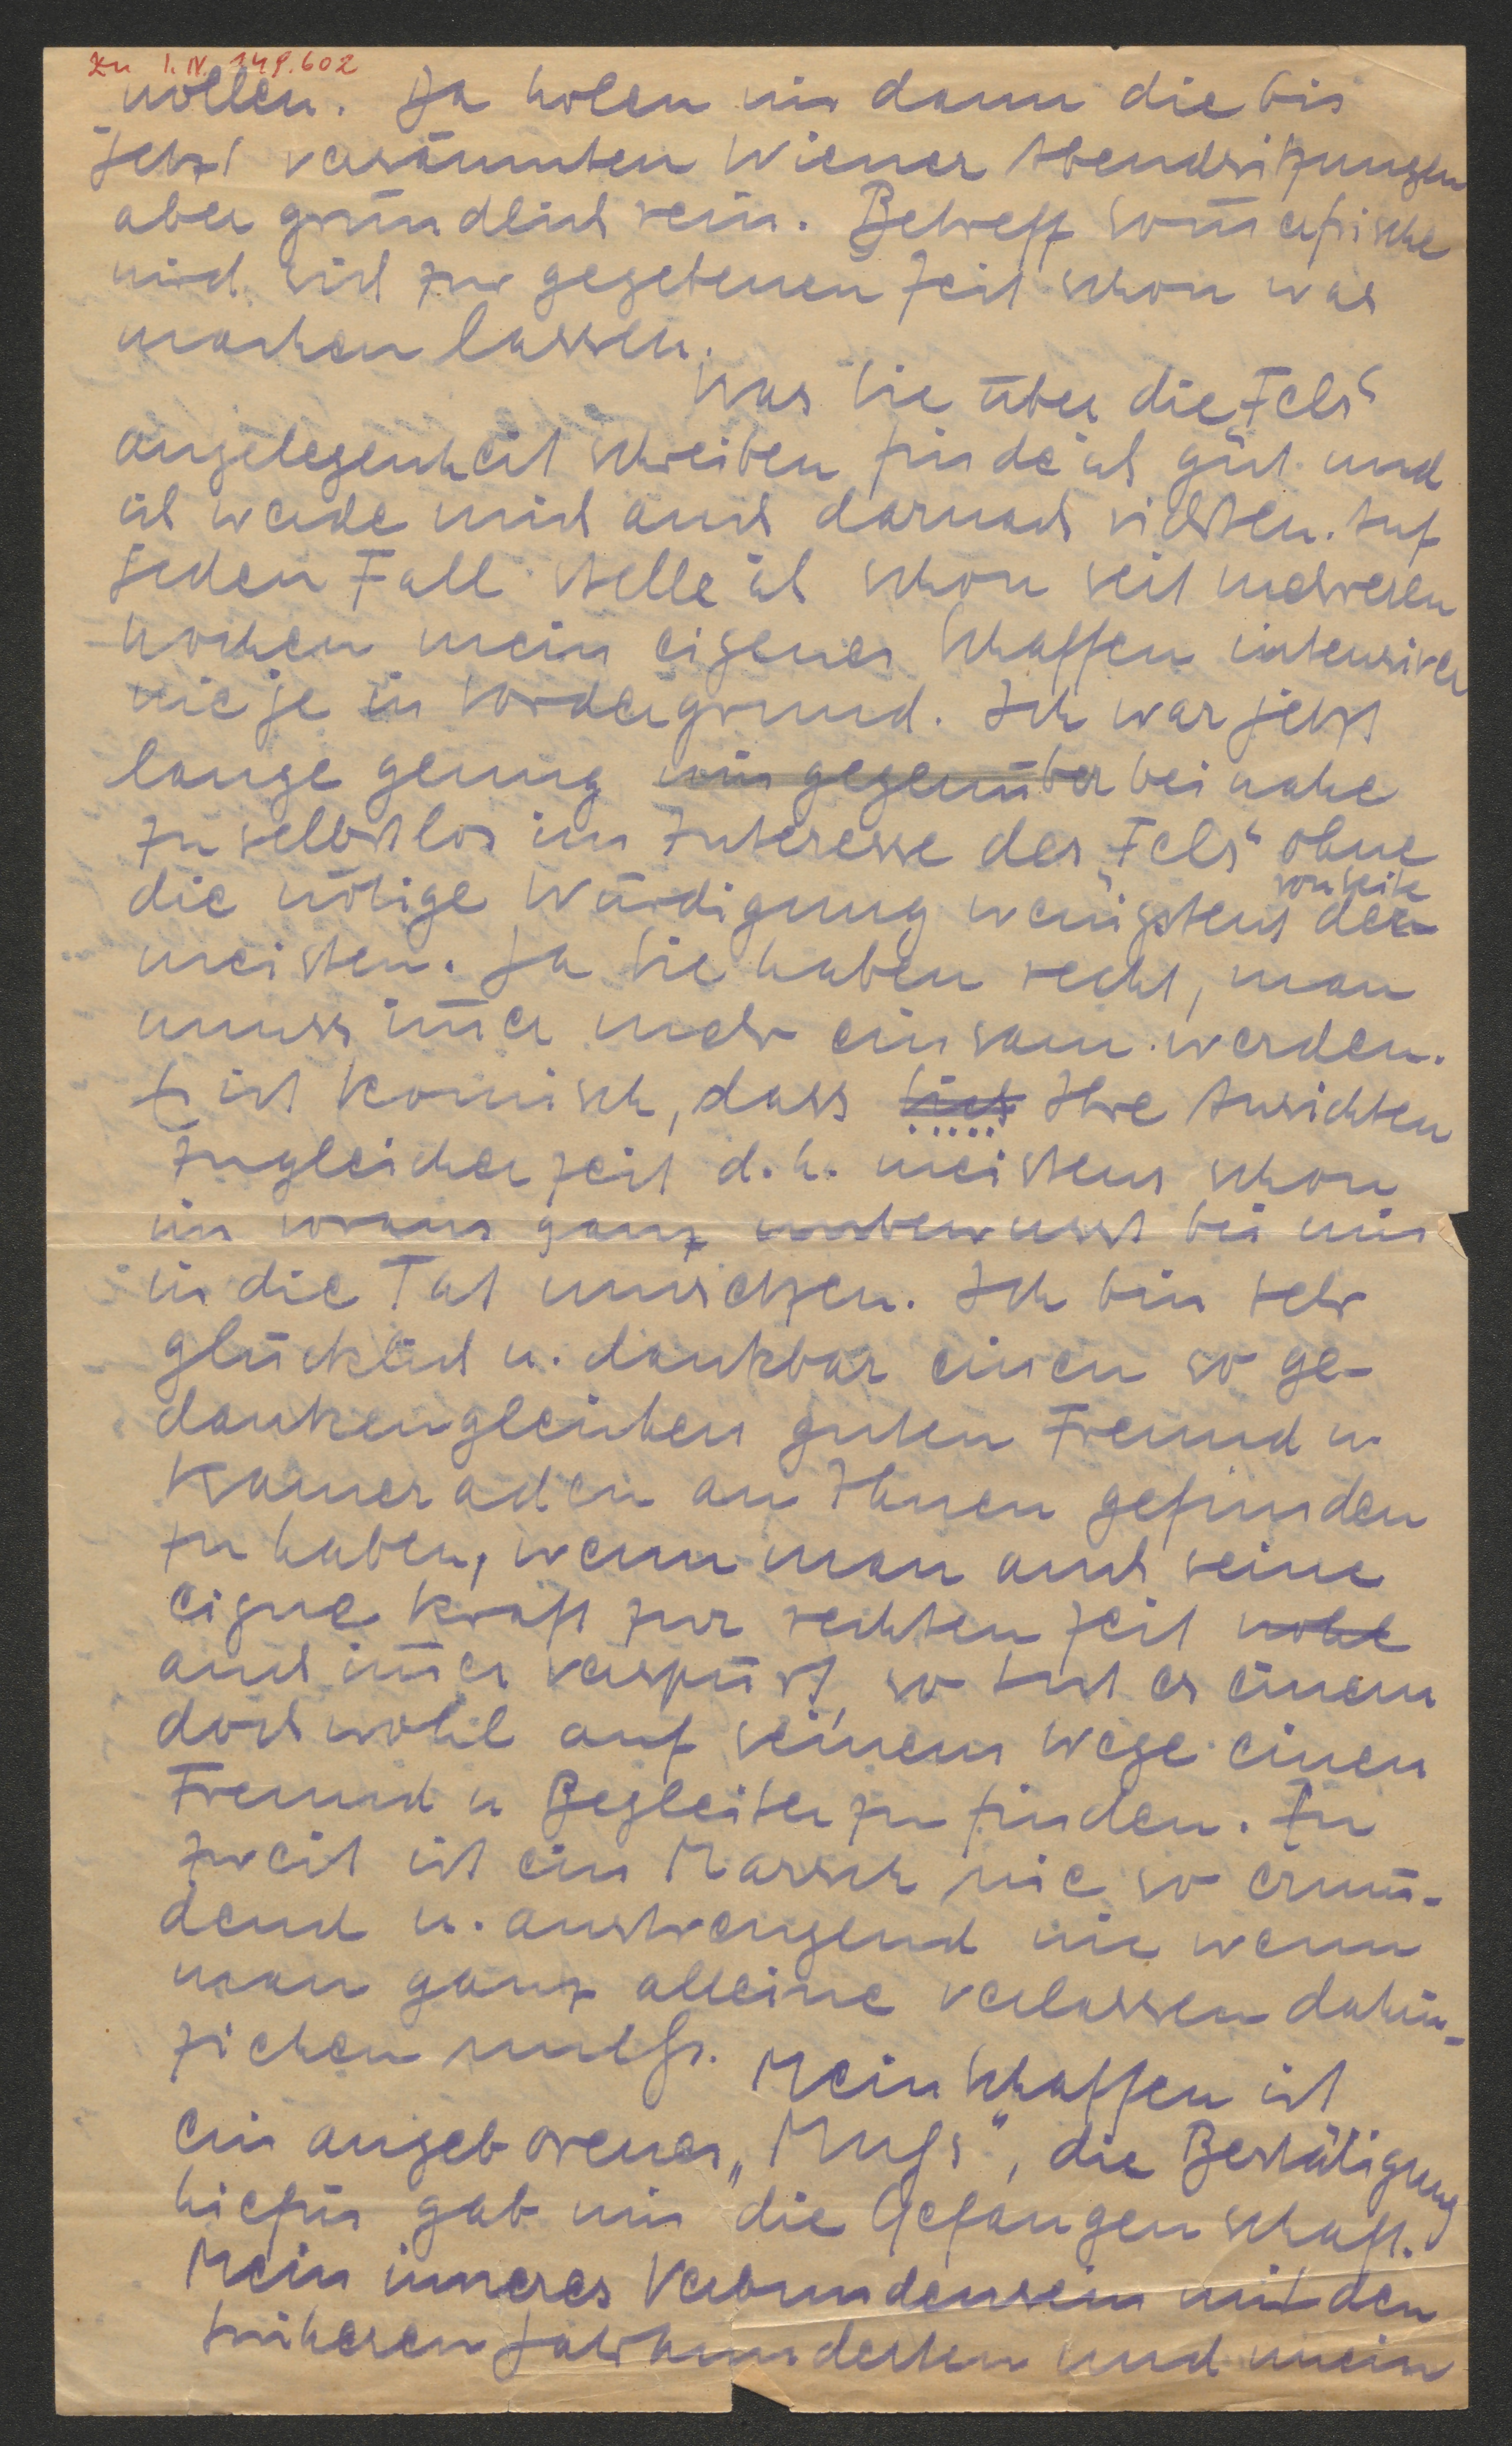 zu I. N. 149.602
wollen. Da holen wir dann die bis
jetzt versäumten Wiener Abendsitzungen
aber gründlich rein. Betreff Som̅erfrische
wird sich zur gegebenen Zeit schon was
machen lassen.
Was Sie über die „Fels“
angelegenheit schreiben finde ich gut und
ich werde mich auch darnach richten. Auf
jeden Fall stelle ich schon seit mehreren
Wochen mein eigenes Schaffen intensiver
wie je in Vordergrund. Ich war jetzt
lange genug mir gegenüber beinahe
zu selbstlos im Interesse des „Fels“ ohne
die nötige Würdigung wenigstens von Seite der
meisten. Ja Sie haben recht, man
muss im̅er mehr einsam werden.
Es ist komisch, dass sich Ihre Ansichten
zugleicher Zeit d. h. meistens schon
im voraus ganz unbewusst bei mir
in die Tat umsetzen. Ich bin sehr
glücklich u. dankbar einen so ge-
dankengleichen guten Freund u
Kameraden an Ihnen gefunden
zu haben, wenn man auch seine
eigne Kraft zur rechten Zeit wohl
auch im̅er verspürt, so tut es einem
doch wohl auf seinem Wege einen
Freund u Begleiter zu finden. Zu
zweit ist ein Marsch nie so ermü-
dend u. anstrengend wie wenn
man ganz alleine verlassen dahin-
ziehen muß.
Mein Schaffen ist
ein angeborenes „Muß“, die Bestätigung
hiefür gab mir die Gefangenschaft.
Mein inneres Verbundensein mit den
früheren Jahrhunderten und mein